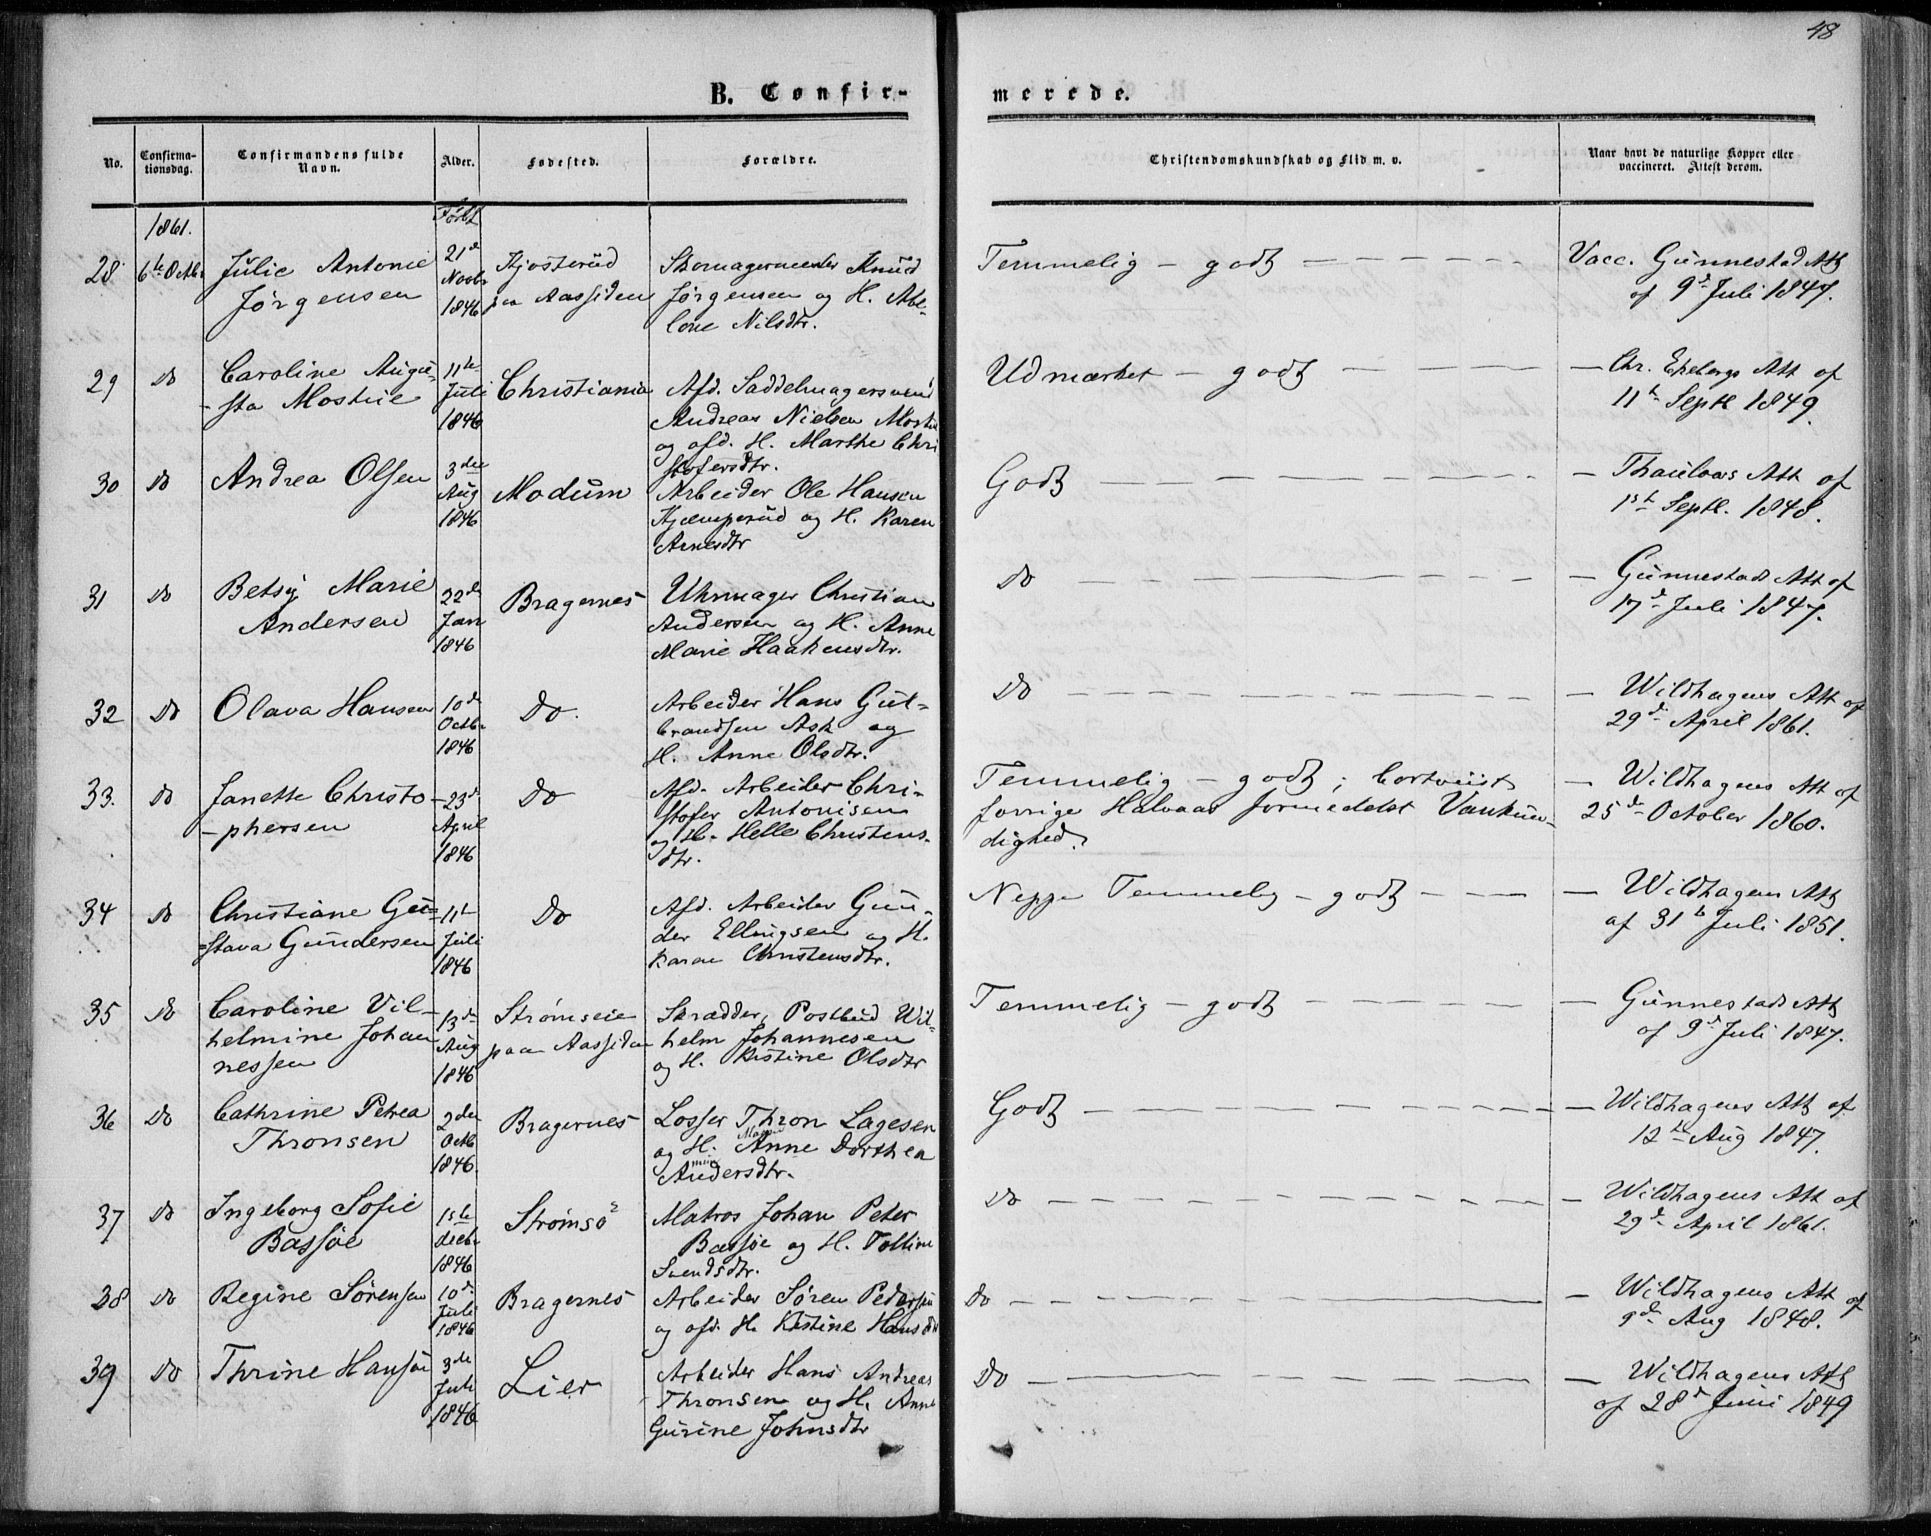 48
B. Confir-
merede.
No.
Confirma-
tionsdag.
Confirmandens fulde
Navn.
Alder.
Fødested.
Forældre.
Christendomskundskab og Flid m. v.
Naar havt de naturlige Kopper eller
vaccineret. Attest derom.
1861.
Født
28 6te Octbr Julie Antonie 21de Kjosterud Skomagermester Knud Temmelig - godt Vacc. Gunnestad Att
Jørgensen Novbr paa Aassiden Jørgensen og H. Abe- af 9d Juli 1847.
1846 lone Nilsdtr.
29 Do Caroline Augu- 11te Christiania Afd. Saddelmagersvend Udmærket - godt - Chr. Ekebergs Att af
-sta Mostue Juli Andreas Nielsen Mostu 11te Septbr 1849.
1846 og afd. H. Marthe Chri
stofersdtr.
30 Do Andrea Olsen 3die Modum Arbeider Ole Hansen Godt - Thaulows Att af
Aug Kjæmperud og H. Karen 1ste Septbr. 1848.
1846 Arnesdtr
31 Do Betsy Marie 22de Bragernes Uhrmager Christian Do - Gunnestads Att af
Andersen Jan Andersen og H. Anne 17d Juli 1847.
1846 Marie Haakensdtr.
32 Do Olava Hansen 10d Do. Arbeider Hans Gul- Do - Wildhagens Att af
Octbr brandsen Ask og 29d April 1861.
1846 H. Anne Olsdtr.
33. Do Janette Christo- 23d Do Afd. Arbeider Chri- Temmelig - godt; bortviist - Wildhagens Att af
-phersen April stofer Antonisen forrige Halvaar formedelst Vankun- 25d October 1860.
1846 og H. Helle Christens- dighed.
dtr.
34 Do Christiane Gu- 11te Do Afd. Arbeider Gun- Neppe Temmelig - godt - Wildhagens Att
=stava Gundersen Juli der Ellingsen og H. af 31te Juli 1851.
1846 Karen Christensdtr.
35 Do Caroline Vil- 13d Strømseie Skrædder, Postbud Wil- Temmelig - godt - Gunnestads Att
helmine Johan Aug paa Aassiden helm Johannesen af 9d Juli 1847.
nessen 1846 og H. Kistine Olsdtr
36 Do Cathrine Petrea 2den Bragernes Losser Thron Lagesen Godt - Wildhagens Att af
Thronsen Octb og H. Anne Dorthea 12te Aug 1847.
1846. Andersdtr.
37 Do Ingeborg Sofie 1ste Strømsø Matros Johan Peter Do - Wildhagens Att af
Bassøe Decbr Bassøe og H. Tolline 29d April 1861.
1846 Svendsdtr.
38 Do Regine Sørensen 10d Bragernes Arbeider Søren Pedersen Do - Wildhagens Att af
Juli og afd. H. Kistine Hansdtr 9d Aug 1848.
1846
39 Do Thrine Hansen 3die Lier Arbeider Hans Andreas Do - Wildhagens Att
Juli Thronsen og H. Anne af 28d Juni 1849
1846 Gurine Johnsdtr